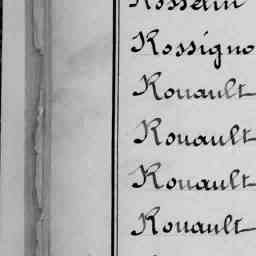 Rosselin
Rossigno
Rouault
Rouault
Rouault
Rouault